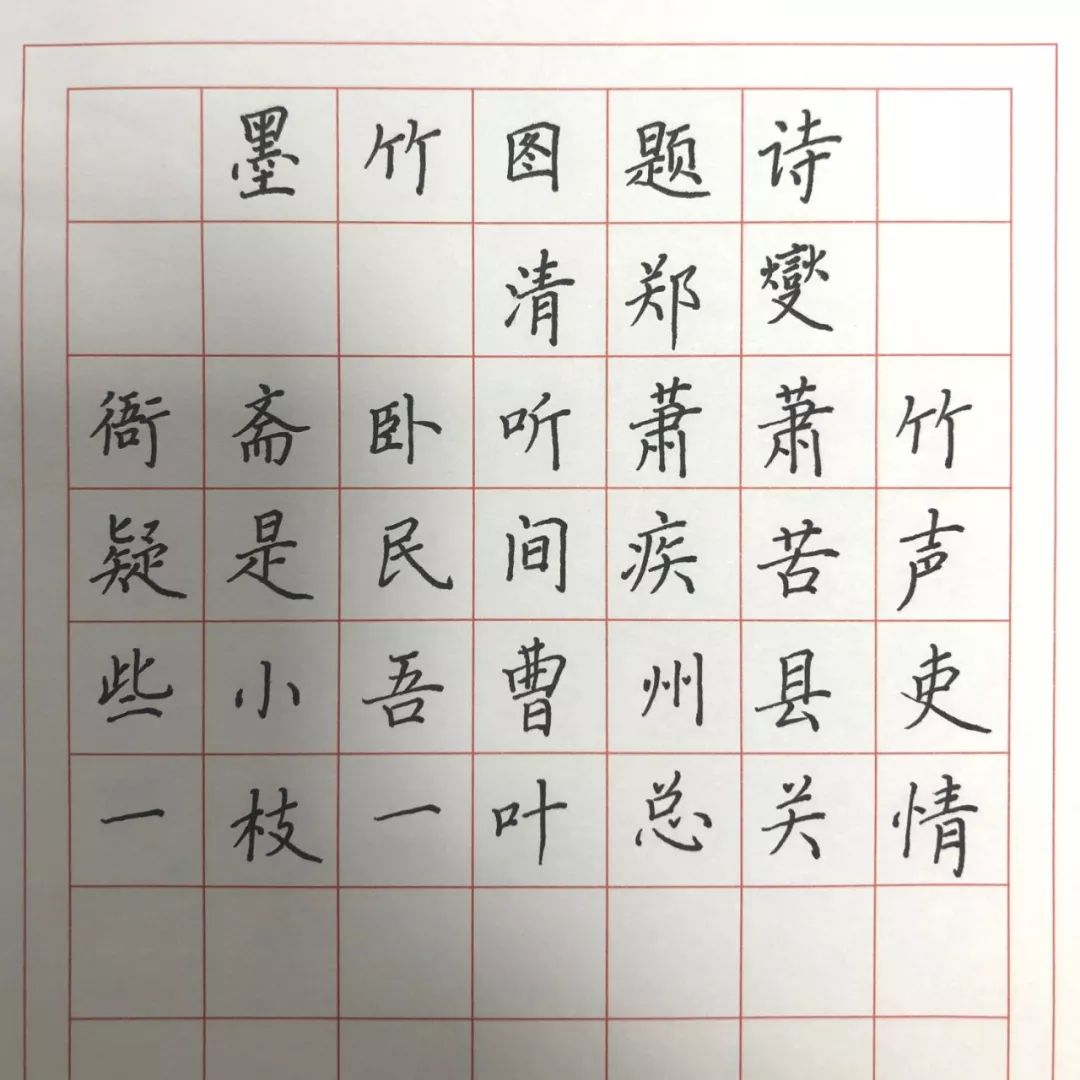 墨竹图题诗
清郑燮
衙斋卧听萧萧竹
疑是民间疾苦声
些小吾曹州县吏
一枝一叶总关情